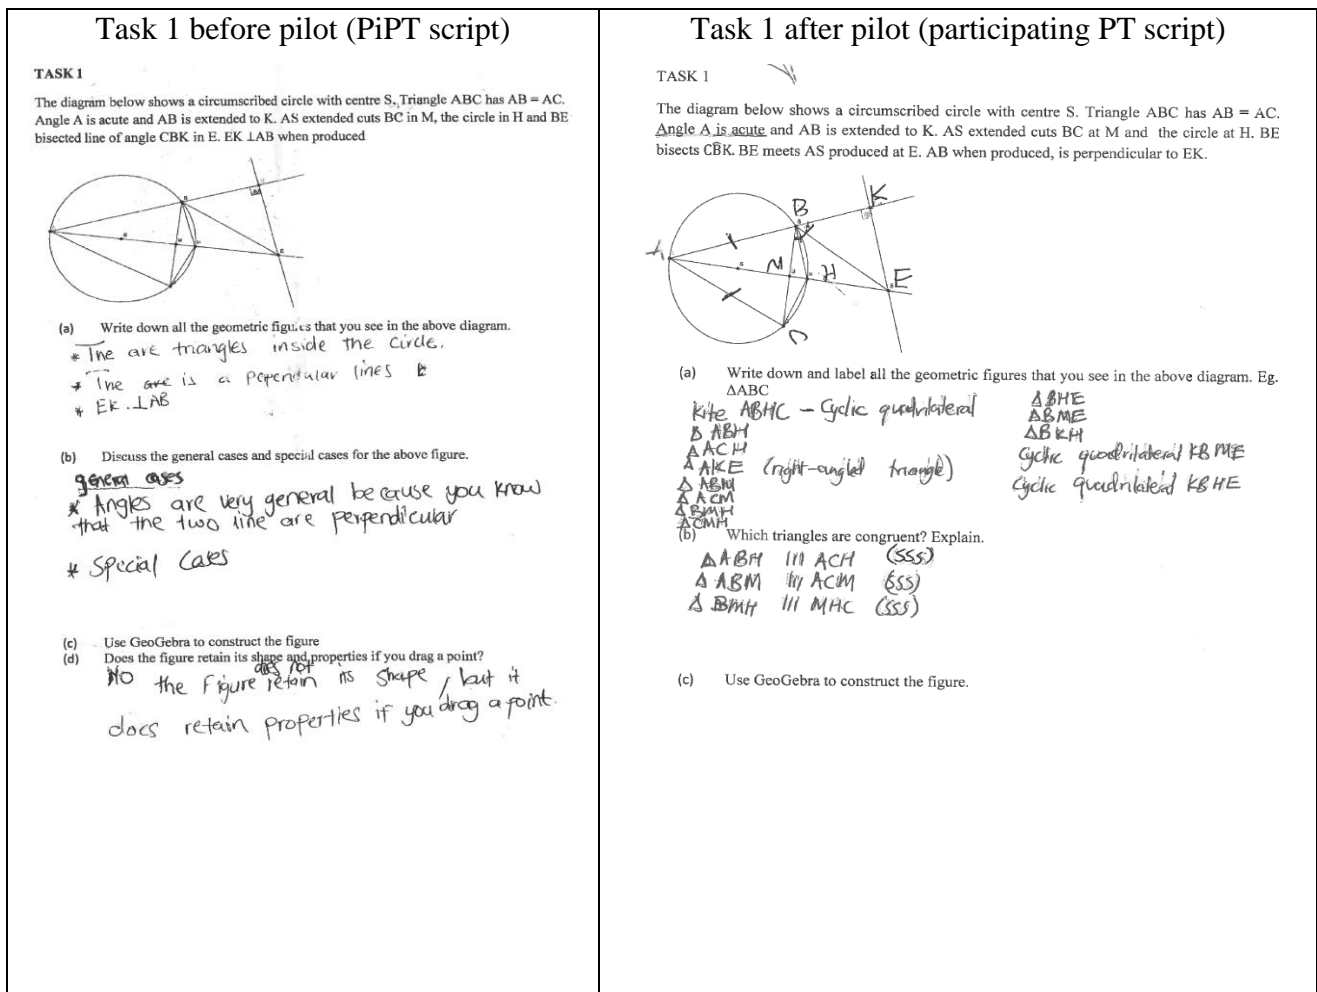 Task 1 before pilot (PiPT script)
TASK 1
The diagram below shows a circumscribed circle with centre S. Triangle ABC has AB = AC.
Angle A is acute and AB is extended to K. AS extended cuts BC in M, the circle in H and BE
bisected line of angle CBK in E. EK ⊥AB when produced
(a) Write down all the geometric figures that you see in the above diagram.
* The are triangles inside the circle.
* The are is a perpendular lines
* EK.⊥AB
(b) Discuss the general cases and special cases for the above figure.
general cases
* Angles are very general because you know
that the two line are perpendicular
* Special Cases
(c) Use GeoGebra to construct the figure
(d) Does the figure retain its shape and properties if you drag a point?
No the figure does not retain its shape, but it
does retain properties if you drag a point.
Task 1 after pilot (participating PT script)
TASK 1
The diagram below shows a circumscribed circle with centre S. Triangle ABC has AB = AC.
Angle A is acute and AB is extended to K. AS extended cuts BC at M and the circle at H. BE
bisects CB̂K. BE meets AS produced at E. AB when produced, is perpendicular to EK.
B
K
A
M
H
E
C
(a) Write down and label all the geometric figures that you see in the above diagram. Eg.
ΔABC
Kite ABHC – Cyclic quadrilateral
Δ ABH
ΔACH
ΔAKE (right-angled triangle)
Δ ABM
Δ ACM
ΔBMH
ΔCMH
ΔBHE
ΔBME
ΔBKH
Cyclic quadrilateral KBME
Cyclic quadrilateral KBHE
(b) Which triangles are congruent? Explain.
ΔABH /// ACH (SSS)
Δ ABM /// ACM (SSS)
Δ BMH /// MHC (SSS)
(c) Use GeoGebra to construct the figure.